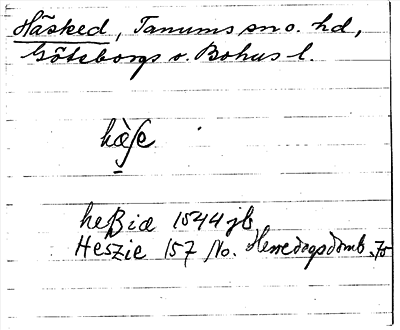 Håsked, Tanums sn o. hd,
Göteborgs o. Bohus l.
hæ̀ʃe
heßiæ 1544 jb
Heszie 157 No. Herredagsdomb. 75